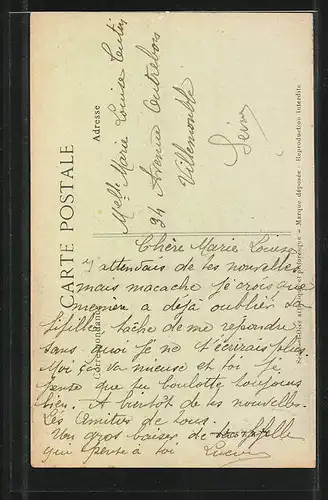 CARTE POSTALE
Correspondance
Adresse
Melle Marie Louise
94 Avenue Outrebon
Villemomble
Seine
Chère Marie Louise
J'attendais de tes nouvelles
mais macache je crois que
memère a déjà oubliés sa
fifille tache de me repondre
sans quoi je ne t'écrirais plus
Moi ça va mieuse et toi je
pense que tu boulotte toujours
bien. A bientôt de tes nouvelles.
Les Amitiés de tous.
Un gros baiser de ta fifille
qui pense à toi Lucie
Marque déposée - Reproduction interdite